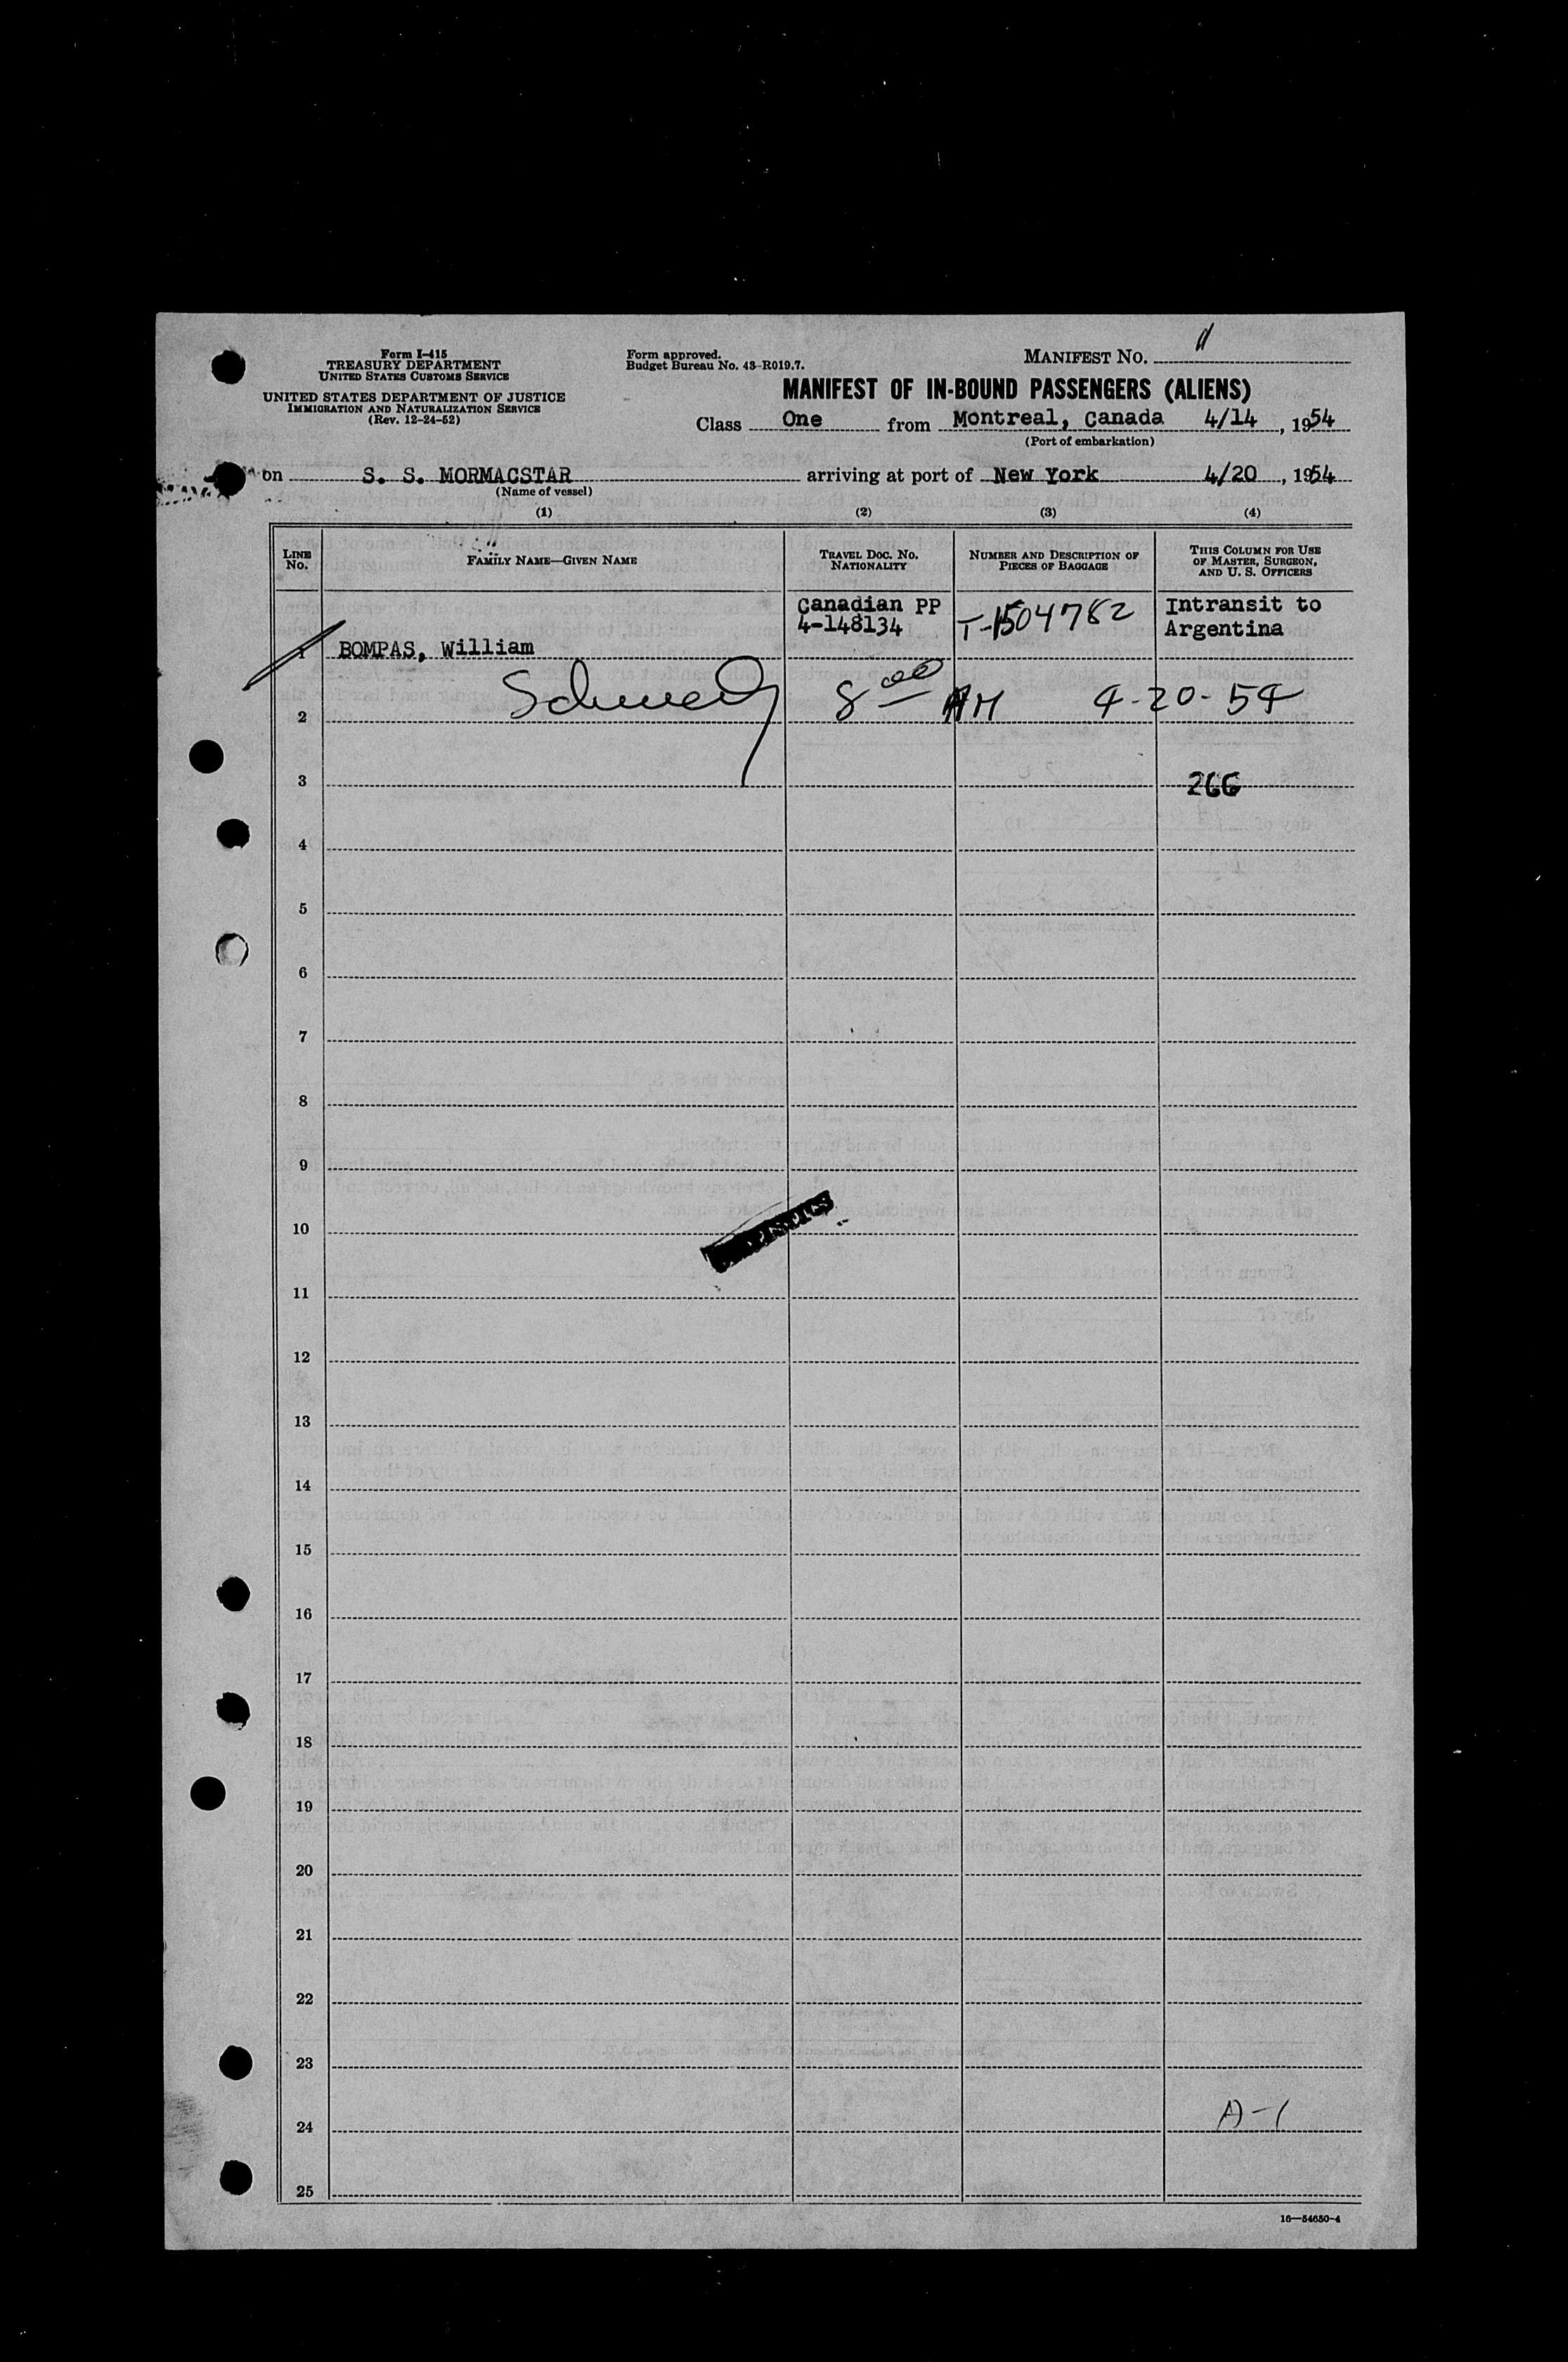 Form I-415
TREASURY DEPARTMENT
UNITED STATES CUSTOMS SERVICE
UNITED STATES DEPARTMENT OF JUSTICE
IMMIGRATION AND NATURALIZATION SERVICE
(Rev. 12-24-52)
Form approved.
Budget Bureau No. 43-R019.7.
MANIFEST NO.
MANIFEST OF IN-BOUND PASSENGERS (ALIENS)
Class One from Montreal, Canada 4/14, 1954
(Port of embarkation)
on S. S. MORMACSTAR arriving at port of New York 4/20, 1954
(Name of vessel)
(1) (2) (3) (4)
LINE NO.
FAMILY NAME—GIVEN NAME
TRAVEL DOC. NO.
NATIONALITY
NUMBER AND DESCRIPTION OF
PIECES OF BAGGAGE
THIS COLUMN FOR USE
OF MASTER, SURGEON,
AND U. S. OFFICERS
Canadian PP
4-148134
T-1504782
Intransit to
Argentina
1 BOMPAS, William
2 8 00 AM 4-20-54
3 266
4
5
6
7
8
9
10
11
12
13
14
15
16
17
18
19
20
21
22
23
24 A-1
25
16—54650-4